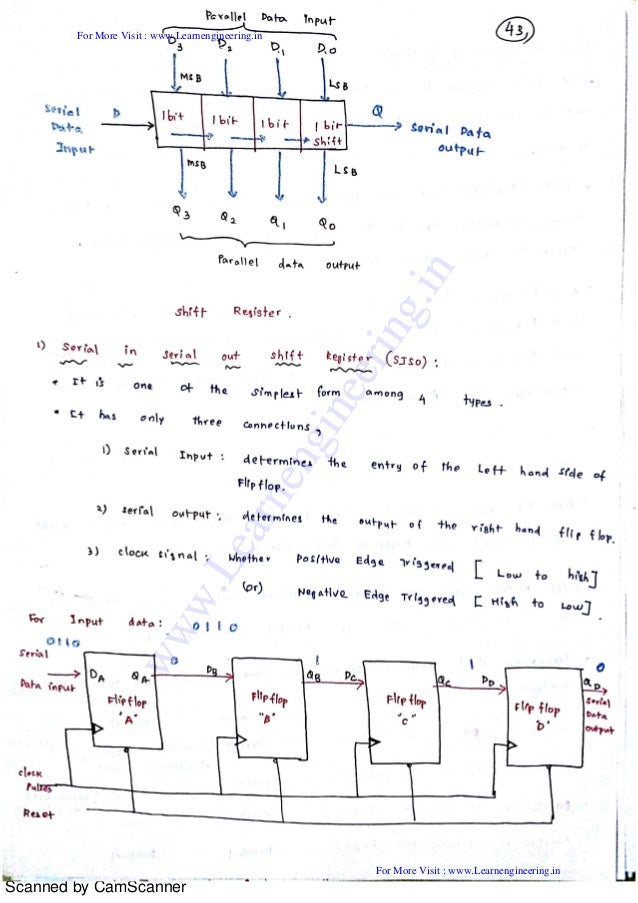 Parallel Data Input
43,
For More Visit : www.Learnengineering.in
D3 D2 D1 D0
MSB LSB
Serial Data Input
D
1 bit 1 bit 1 bit 1 bit shift
Q
Serial Data output
MSB LSB
Q3 Q2 Q1 Q0
Parallel data output
Shift Register.
1) Serial in serial out shift Register (SISO) :
• It is one of the simplest form among 4 types.
• It has only three connections,
1) Serial Input : determines the entry of the Left hand side of
Flip flop.
2) serial output : determines the output of the right hand flip flop.
3) clock signal : Whether Positive Edge Triggered [ Low to high]
(or) Negative Edge Triggered [ High to Low].
www.Learnengineering.in
For Input data : 0110
0110
Serial
Data input
DA QA
0
Flip flop
"A"
DB QB
1
Flip flop
"B"
DC QC
1
Flip flop
"C"
DD QD
0
Flip flop
"D"
Serial
Data
output
clock
Pulses
Reset
For More Visit : www.Learnengineering.in
Scanned by CamScanner